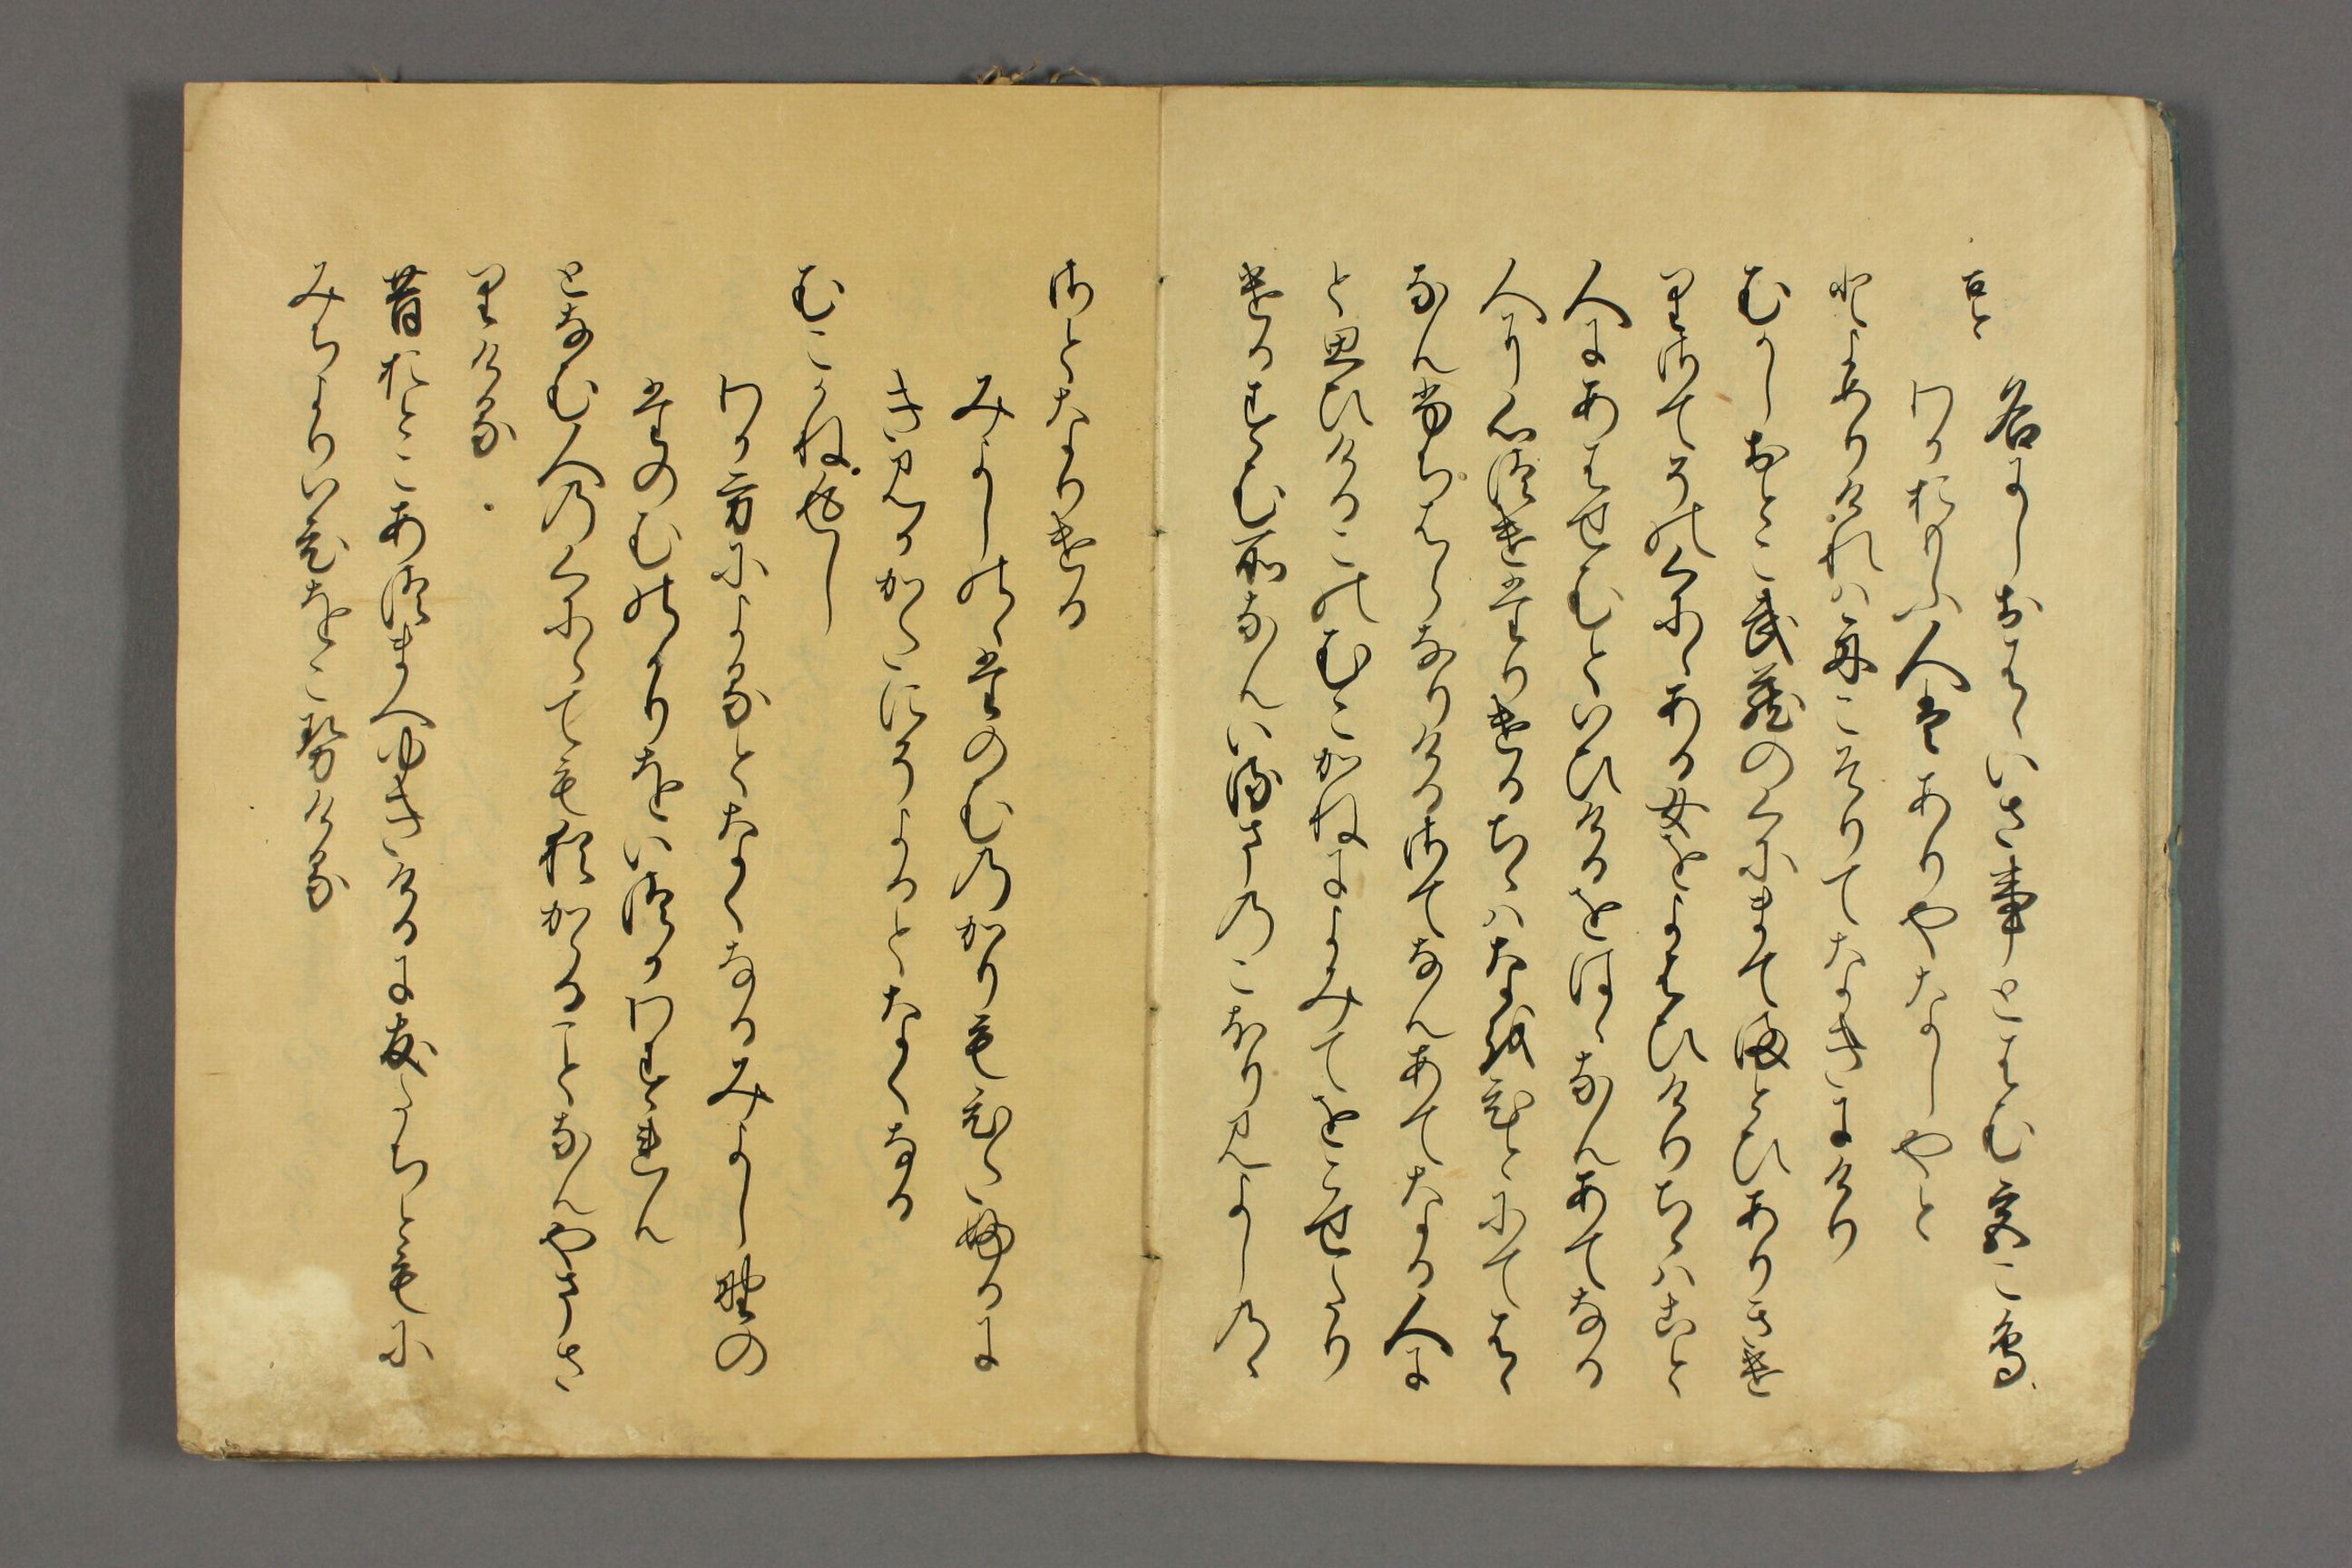 古今
名にしおはゝいさ事とはむ宮こ鳥
わかおもふ人はありやなしやと
とよめりけれは舟こそりてなきにけり
むかしおとこ武蔵のくにまてまとひありきけ
りさてそのくにゝある女をよはひけりちゝはこと
人にあはせむといひけるをはゝなんあてなる
人に心つけたりけるちゝはなをひとにてはゝ
なん藤はらなりけるさてなんあてなる人に
と思ひけるこのむこかねによみてをこせたり
けるすむ所なんいるまのこほりみよしのゝ
さとなりける
みよしのゝたのむのかりもひたふるに
きみかかたにそよるとなくなる
むこかね返し
わか方によるとなくなるみよし野の
たのむのかりをいつかわすれん
となむ人のくにゝても猶かゝることなんやまさ
りける
昔おとこあつまへゆきけるに友たちともに
みちよりいひをこせける